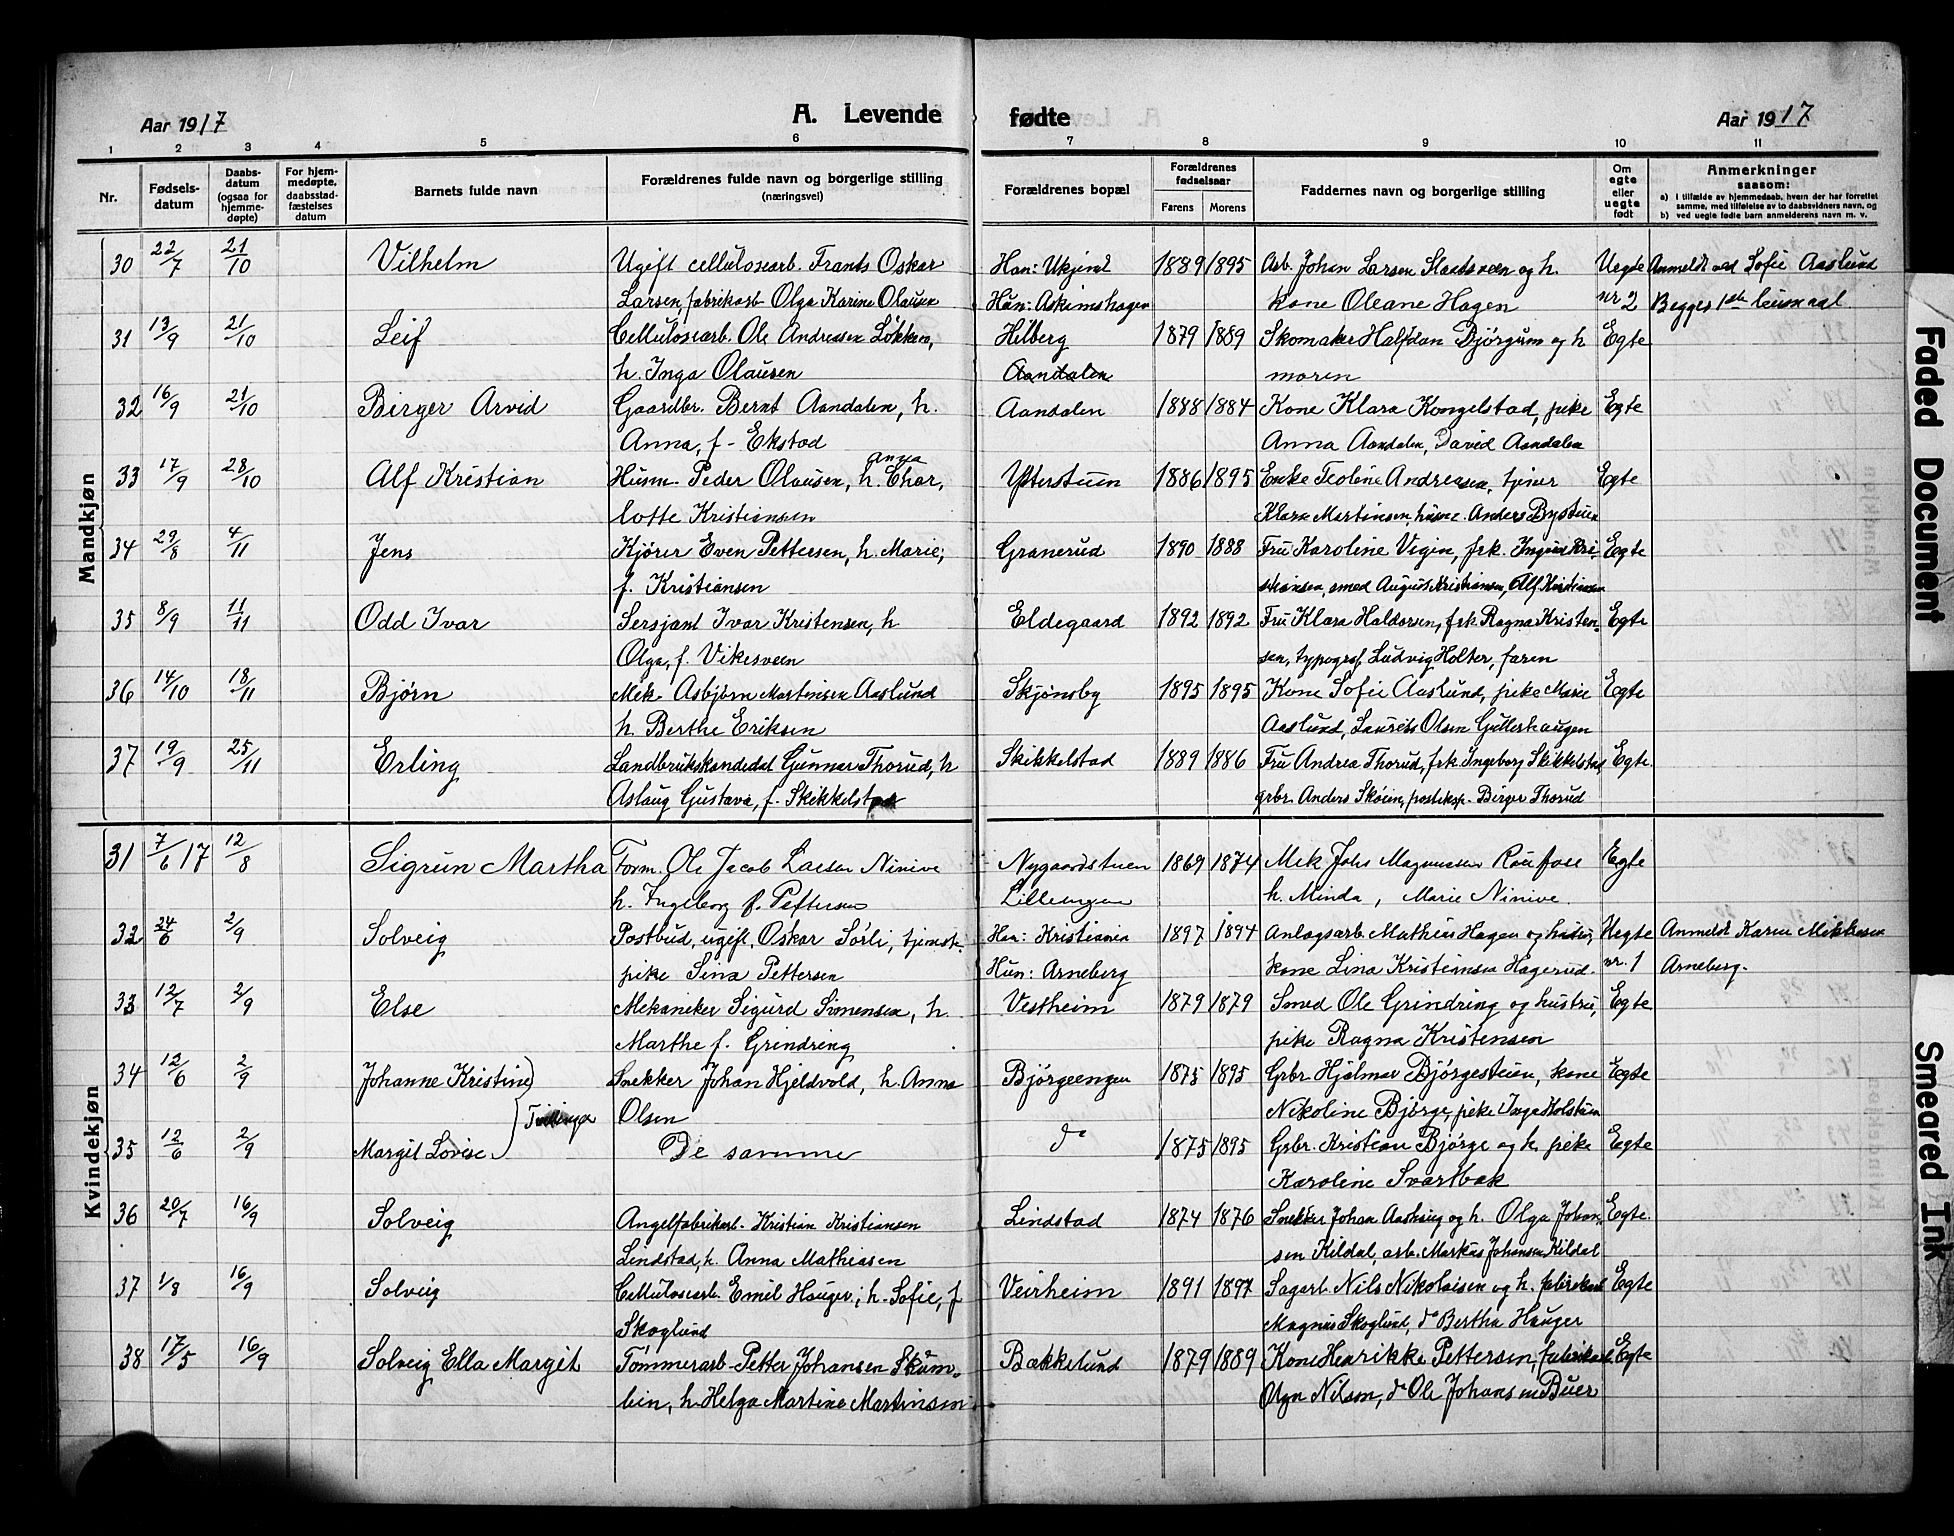 Aar 1917 A. Levende fødte Aar 1917
1 2 3 4 5 6 7 8 9 10 11
Nr. Fødsels-datum Daabs-datum (ogsaa for hjemme-døpte) For hjem-medøpte, daabsstad-fæstelses datum Barnets fulde navn Forældrenes fulde navn og borgerlige stilling (næringsvei) Forældrenes bopæl Forældrenes fødselsaar Farens Morens Faddernes navn og borgerlige stilling Om egte eller uegte født Anmerkninger saasom:
a) I tilfælde av hjemmedaab, hvem der har forrettet samme, med tilføielse av to daabsvidners navn, og
b) ved uegte fødte barn anmelderens navn m. v.
Mandkjøn
30 22/7 21/10 Vilhelm Ugift cellulosearb. Frants Oskar Han: Ukjent 1889 1895 Arb. Johan Larsen Slaatsveen og h. Uegte Anmeldt ved Sofie Aaslund
Larsen, fabrikarb Olga Karine Olausen Hun: Askimshagen kone Oleane Hagen nr 2 Begges 1ste leiermaal
31 13/9 21/10 Leif Cellulosearb. Ole Andreasen Løkken, Hilberg 1879 1889 Skomaker Halfdan Bjørgum og h Egte
h. Inga Olausen Aandalen moren
32 16/9 21/10 Birger Arvid Gaardbr. Bernt Aandalen, h. Aandalen 1888 1884 Kone Klara Kongelstad, pike Egte
Anna, f- Ekstad Anna Aandalen, David Aandalen
33 17/9 28/10 Alf Kristian Husm. Peder Olausen, h. Anna Char, Ytterstuen 1886 1895 Enke Teoline Andreasen, tjener Egte
lotte Kristiansen Klara Martinsen, husm. Anders Bystuen
34 29/8 4/11 Jens Kjører Even Pettersen, h. Marie, Granerud 1890 1888 Fru Karoline Vigen, frk. Ingrid Kri- Egte
f. Kristiansen stiansen, smed August Kristiansen, Alf Kristiansen
35 8/9 11/11 Odd Ivar Sersjant Ivar Kristensen, h Eldegaard 1892 1892 Fru Klara Haldorsen, frk. Ragna Kristen- Egte
Olga, f. Vikesveen sen, typograf Ludvig Holter, faren
36 14/10 18/11 Bjørn Mek. Asbjørn Martinsen Aaslund Skjønsby 1895 1895 Kone Sofie Aaslund, pike Marie Egte
h. Berthe Eriksen Aaslund, Laurits Olsen Gutterhaugen
37 19/9 25/11 Erling Landbrukskandidat Gunnar Thorud, h Skikkelstad 1889 1886 Fru Andrea Thorud, frk Ingeborg Skikkelstad, Egte
Aslaug Gustava, f. Skikkelstad grbr. Anders Skøien, posteksp. Birger Thorud
Kvindekjøn
31 7/6 17 12/8 Sigrun Martha Form. Ole Jacob Larsen Ninive Nygaardstuen 1869 1874 Mek Johs Magnussen Raufoss Egte
h. Ingeborg f. Pettersen Lilleengen h. Minda, Marie Ninive.
32 24/6 2/9 Solveig Postbud, ugift, Oskar Sørli, tjeneste- Han: Kristiania 1897 1894 Anlagsarb. Mathias Hagen og hustru, Uegte Anmeldt Karen Mikkelsen
pike Sina Pettersen Hun: Arneberg kone Lina Kristiansen Hagerud. nr. 1 Arneberg.
33 12/7 2/9 Else Mekaniker Sigurd Simensen, h. Vestheim 1879 1879 Smed Ole Grindring og hustru, Egte
Marthe f. Grindring pike Ragna Kristensen
34 12/6 2/9 Johanne Kristine Snekker Johan Hjeldvold, h. Anna Bjørgeengen 1875 1895 Grbr. Hjalmar Bjørgestuen, kone Egte
Tvillinger Olsen Nikoline Bjørge, pike Inga Holstuen
35 12/6 2/9 Margit Lovise De samme do 1875 1895 Grbr. Kristian Bjørge og h. pike Egte
Karoline Svartbak
36 20/7 16/9 Solveig Angelfabrikarb. Kristian Kristiansen Lindstad 1874 1876 Snekker Johan Aashaug og h. Olga Johan- Egte.
Lindstad, h. Anna Mathiasen sen Kildal, arb. Markus Johansen Kildal
37 1/8 16/9 Solveig Cellulosearb. Emil Hauger, h. Sofie, f Veirheim 1891 1897 Sagarb. Nils Nikolaisen og h. fabrikarb Egte
Skoglund Magnus Skoglund, do Bertha Hauger
38 17/5 16/9 Solveig Ella Margit Tømmerarb. Petter Johansen Skum- Bakkelund 1879 1889 Kone Henrikke Pettersen, fabrikarb. Egte
lien, h. Helga Martine Martinsen Olga Nilsen, do Ole Johansen Buer
Faded Document
Smeared Ink